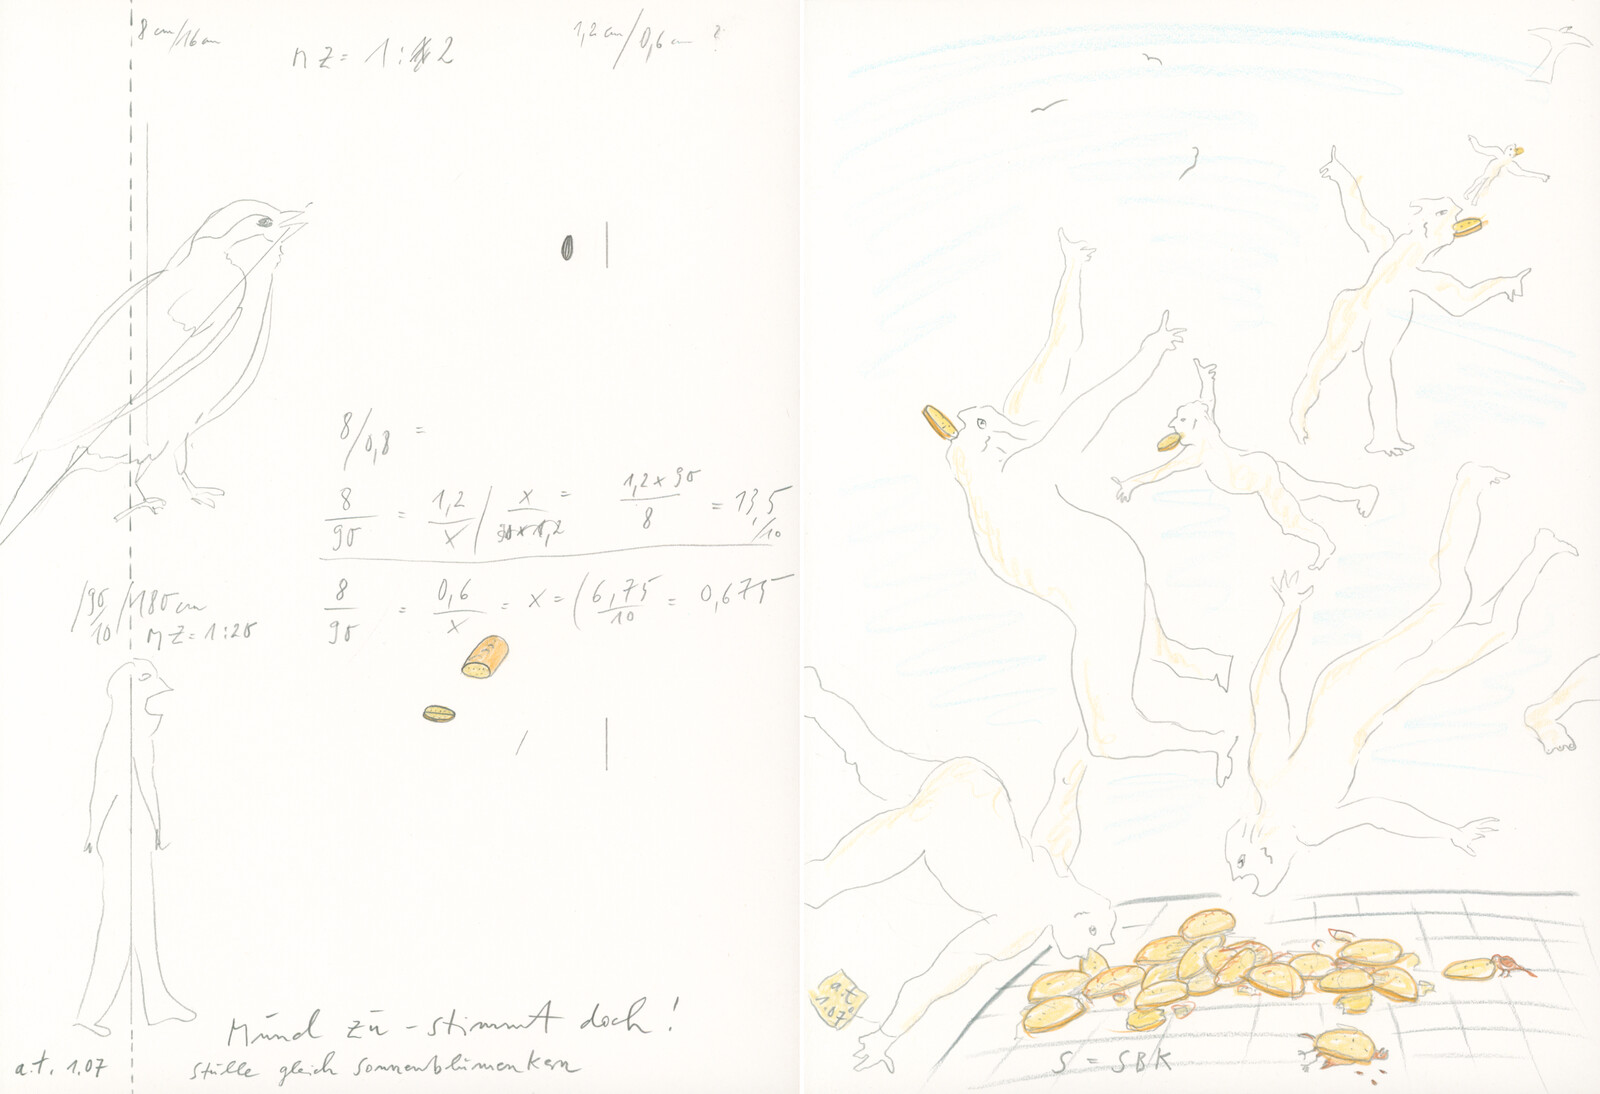 8 cm/16 cm
nZ = 1:2
1,2 cm/0,6 cm ?
8/0,8 =
8/90 = 1,2/x / x = 1,2 x 90/8 = 13,5/10
8/90 = 0,6/x = x = (6,75/10 = 0,675
/90/10 /180 cm
nZ = 1:20
Mund zu - stimmt doch!
a.t. 1.07
Stulle gleich Sonnenblumenkern
a.t.
1.07
S = SBK